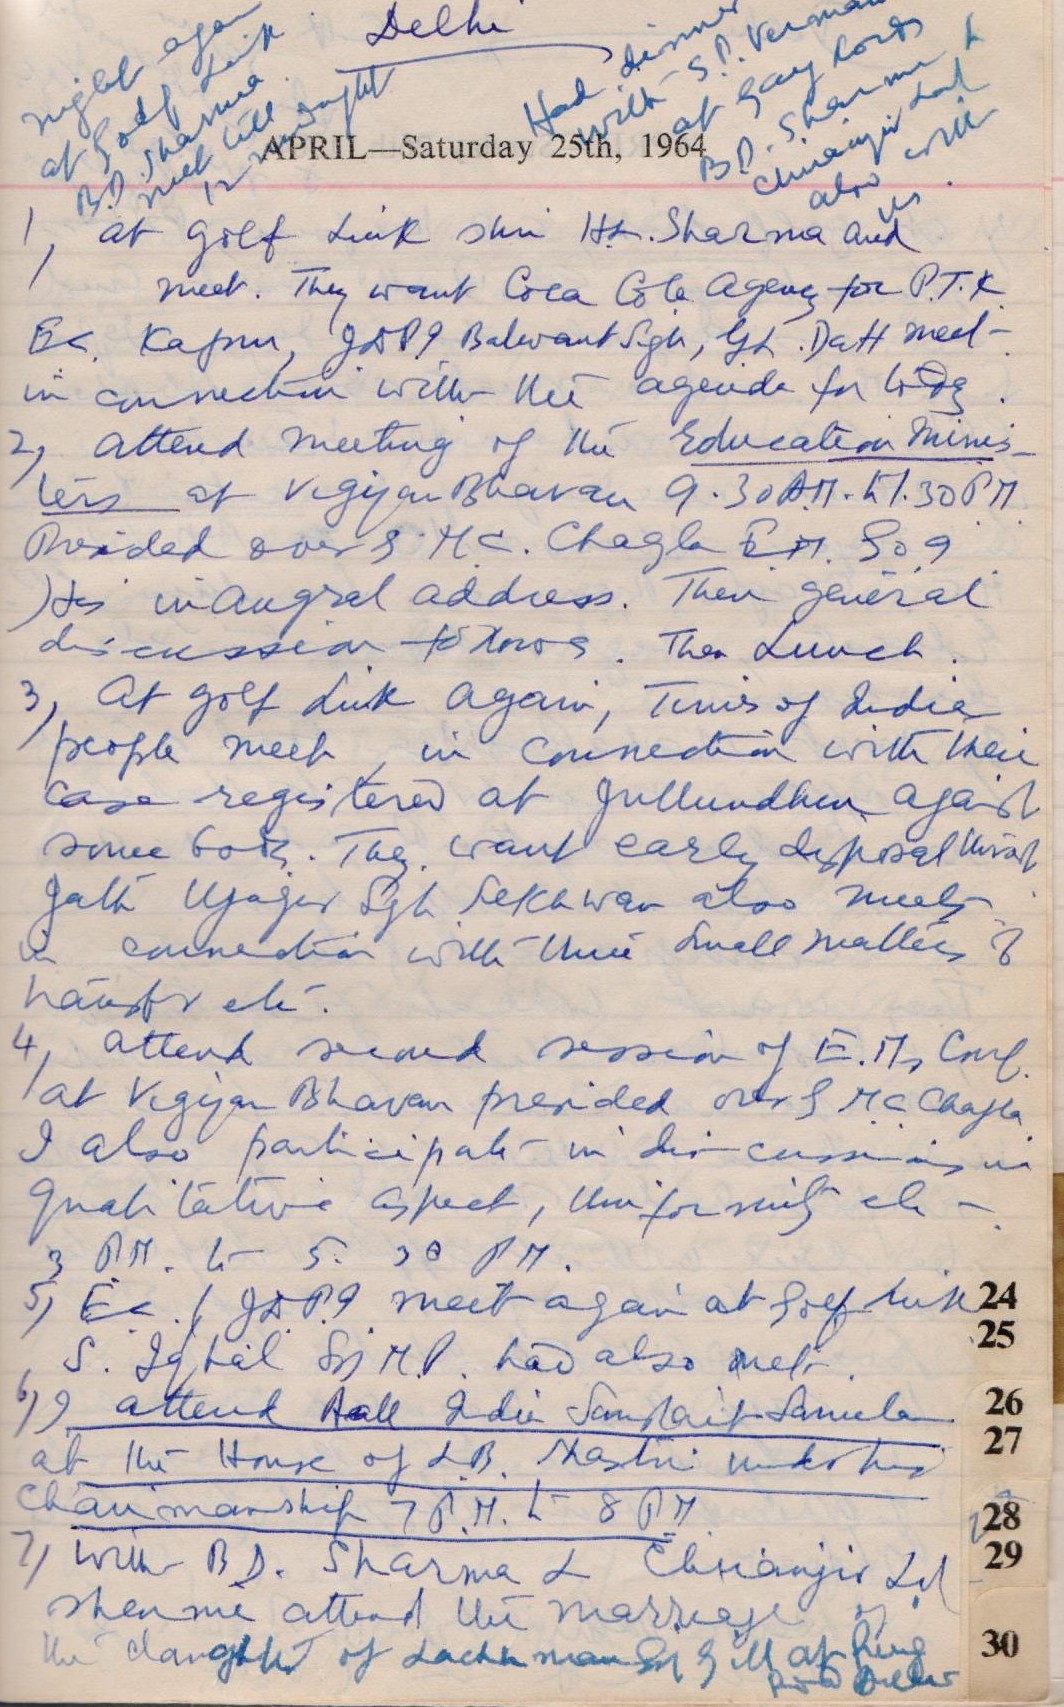 Delhi
night again
at Golf Link
B.D. Sharma
meet till
12 midnight
Had dinner
with S.P. Verma
at Gay Lords
B.D. Sharma &
Chiranjir Lal
also with
us.
APRIL—Saturday 25th, 1964
1, at Golf Link shri H.L. Sharma and
meet. They want Coca Cola Agency for P.T.K
Ec. Kapur, Balwant Sgh, Datt meet
in connection with the agenda for
2, attend meeting of the Education Minis-
ters at Vigyan Bhavan 9.30 A.M. to 1.30 P.M.
Presided over S. M.C. Chagla E.M.
His inaugral address. Then general
discussion follows. Then Lunch.
3, At Golf Link again, Times of India
people meet in connection with their
case registered at Jullundhur against
some body. They want early disposal
Jath Ujagir Sgh Sekhwan also meets
in connection with their small matters of
transfer etc.
4, attend second session of E.Ms Conf.
at Vigyan Bhavan presided over S M C Chagla
I also participate in discussions in
qualitative aspect, uniformity etc
3 P.M. to 5.30 P.M.
5, Ec. meet again at Golf Link
S. Iqbal Sgh M.P. had also met.
6, I attend All India Samiti
at the House of L.B. Shastri under his
Chairmanship 7 P.M. to 8 P.M.
7, with B.D. Sharma & Chiranjir Lal
Sharma attend the marriage of
the daughter of Lachhman Sgh Gill at Ring
Road Delhi
24
25
26
27
28
29
30